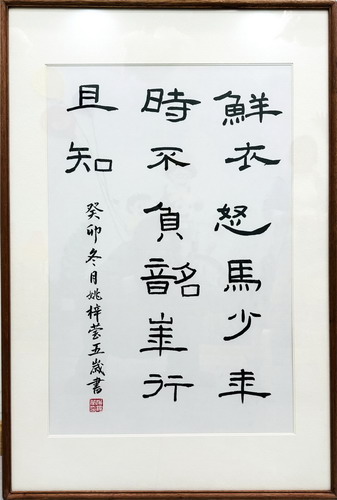 鮮衣怒馬少年
時不負韶華行
且知
癸卯冬月姚梓莹五歲書